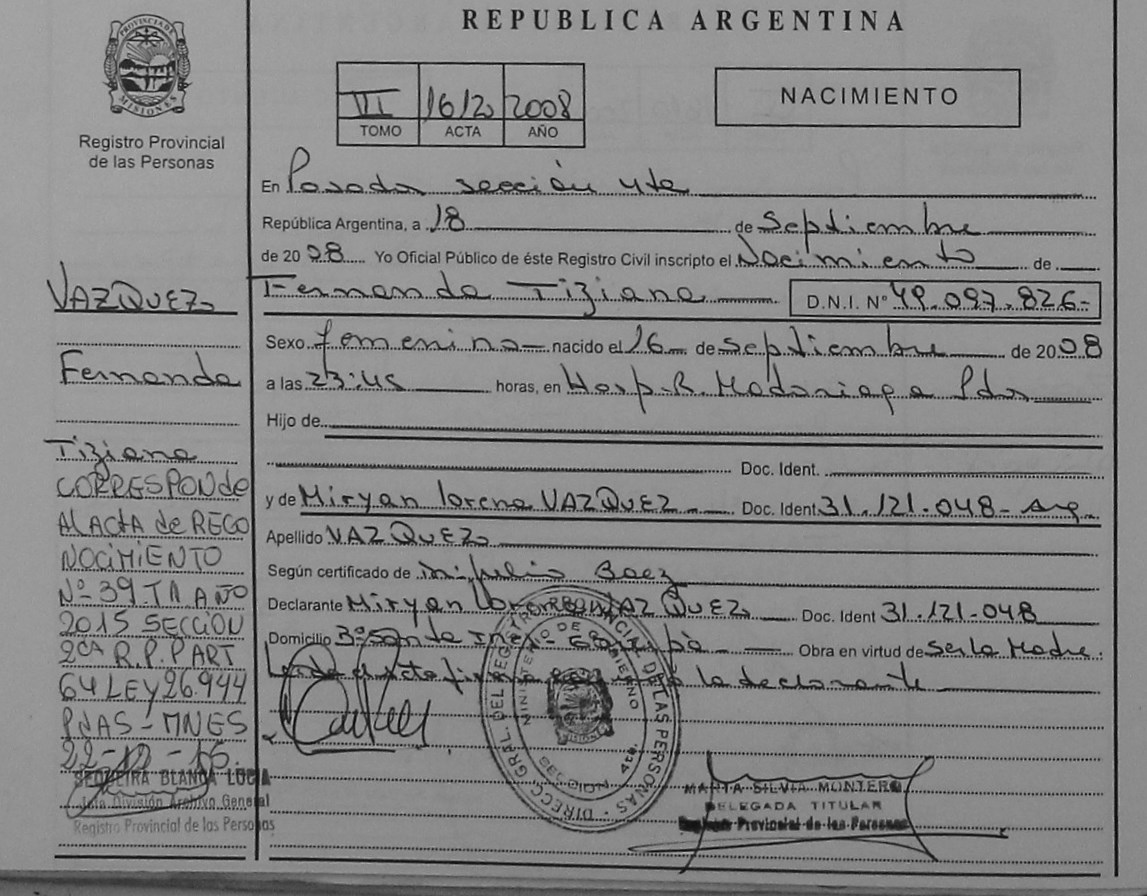 REPUBLICA ARGENTINA
PROVINCIA DE MISIONES
Registro Provincial
de las Personas
III 1612 2008
TOMO ACTA AÑO
NACIMIENTO
En Posadas sección 4ta
República Argentina, a 18 de Septiembre
de 2008 Yo Oficial Público de éste Registro Civil inscripto el Nacimiento de
Fernanda Tiziana D.N.I. Nº 49.097.826-
Sexo femenino nacido el 16 de Septiembre de 2008
a las 23:45 horas, en Hosp. R. Madariaga Pdas
Hijo de
Doc. Ident.
y de Miryan Lorena VAZQUEZ Doc. Ident. 31.121.048- Arg.
Apellido VAZQUEZ
Según certificado de Baez
Declarante Miryan Lorena VAZQUEZ Doc. Ident 31.121.048
Domicilio Obra en virtud de Ser la Madre.
la declarante
VAZQUEZ
Fernanda
Tiziana
CORRESPONde
Al ActA de RECO
NOCIMIENTO
Nº 39 TA AÑO
2015 SECCIÓN
2ca R.P.P ART
64 LEY 26.994
PDAS - MNES
SEQUEIRA BLANCA LUCIA
Jefa División Archivo General
Registro Provincial de las Personas
DIRECC. GRAL DEL REGISTRO PROVINCIAL DE LAS PERSONAS
MINISTERIO DE GOBIERNO
SECCION 4ta.
MARTA SILVIA MONTERO
DELEGADA TITULAR
Registro Provincial de las Personas